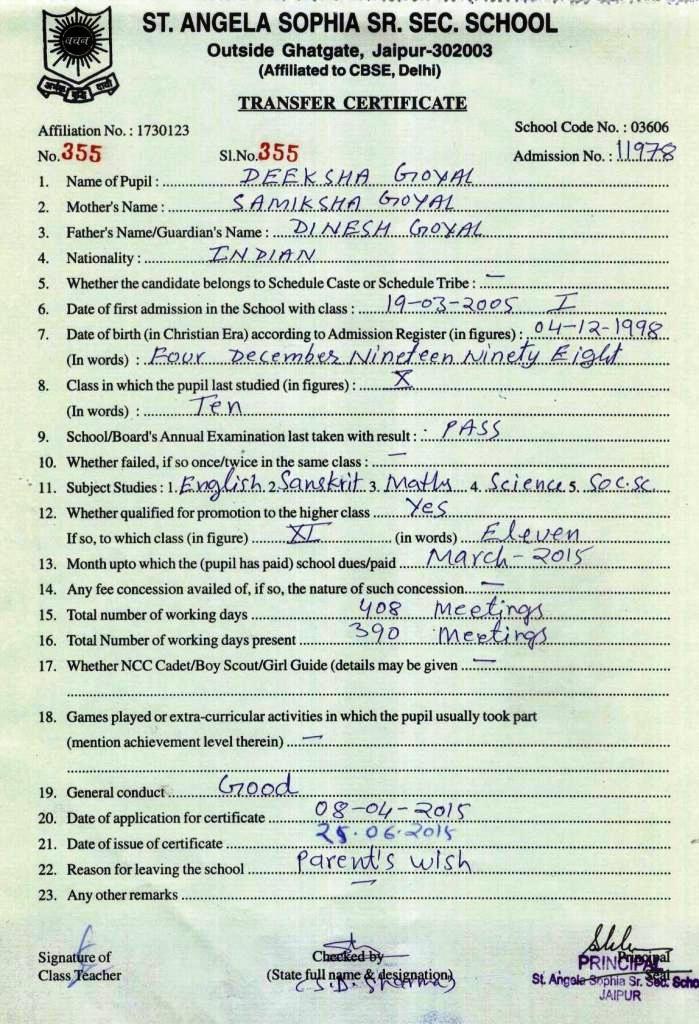 वचन
ST. ANGELA SOPHIA SR. SEC. SCHOOL
Outside Ghatgate, Jaipur-302003
(Affiliated to CBSE, Delhi)
TRANSFER CERTIFICATE
Affiliation No. : 1730123 School Code No. : 03606
No. 355 Sl.No. 355 Admission No. : 11978
1. Name of Pupil : DEEKSHA GOYAL
2. Mother's Name : SAMIKSHA GOYAL
3. Father's Name/Guardian's Name : DINESH GOYAL
4. Nationality : INDIAN
5. Whether the candidate belongs to Schedule Caste or Schedule Tribe : —
6. Date of first admission in the School with class : 19-03-2005 I
7. Date of birth (in Christian Era) according to Admission Register (in figures) : 04-12-1998
(In words) : Four December Nineteen Ninety Eight
8. Class in which the pupil last studied (in figures) : X
(In words) : Ten
9. School/Board's Annual Examination last taken with result : PASS
10. Whether failed, if so once/twice in the same class : —
11. Subject Studies : 1. English 2. Sanskrit 3. Maths 4. Science 5. Soc.sc.
12. Whether qualified for promotion to the higher class Yes
If so, to which class (in figure) XI (in words) Eleven
13. Month upto which the (pupil has paid) school dues/paid March-2015
14. Any fee concession availed of, if so, the nature of such concession —
15. Total number of working days 408 Meetings
16. Total Number of working days present 390 Meetings
17. Whether NCC Cadet/Boy Scout/Girl Guide (details may be given —
18. Games played or extra-curricular activities in which the pupil usually took part
(mention achievement level therein) —
19. General conduct Good
20. Date of application for certificate 08-04-2015
21. Date of issue of certificate 25.06.2015
22. Reason for leaving the school Parent's wish
23. Any other remarks —
Signature of Checked by Principal
Class Teacher (State full name & designation) Seal
(S.D. Sharma)
PRINCIPAL
St. Angela Sophia Sr. Sec. Scho
JAIPUR